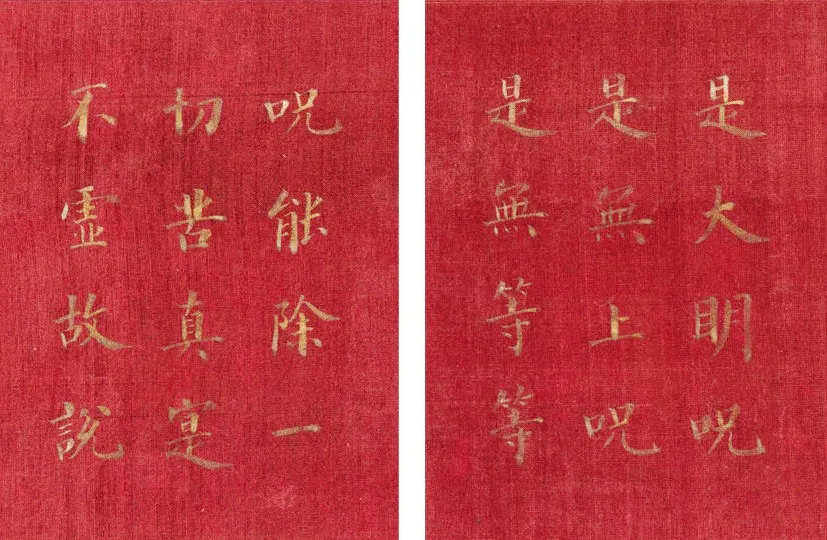 是大明呪
是無上呪
是無等等
呪能除一
切苦真寔
不虛故說